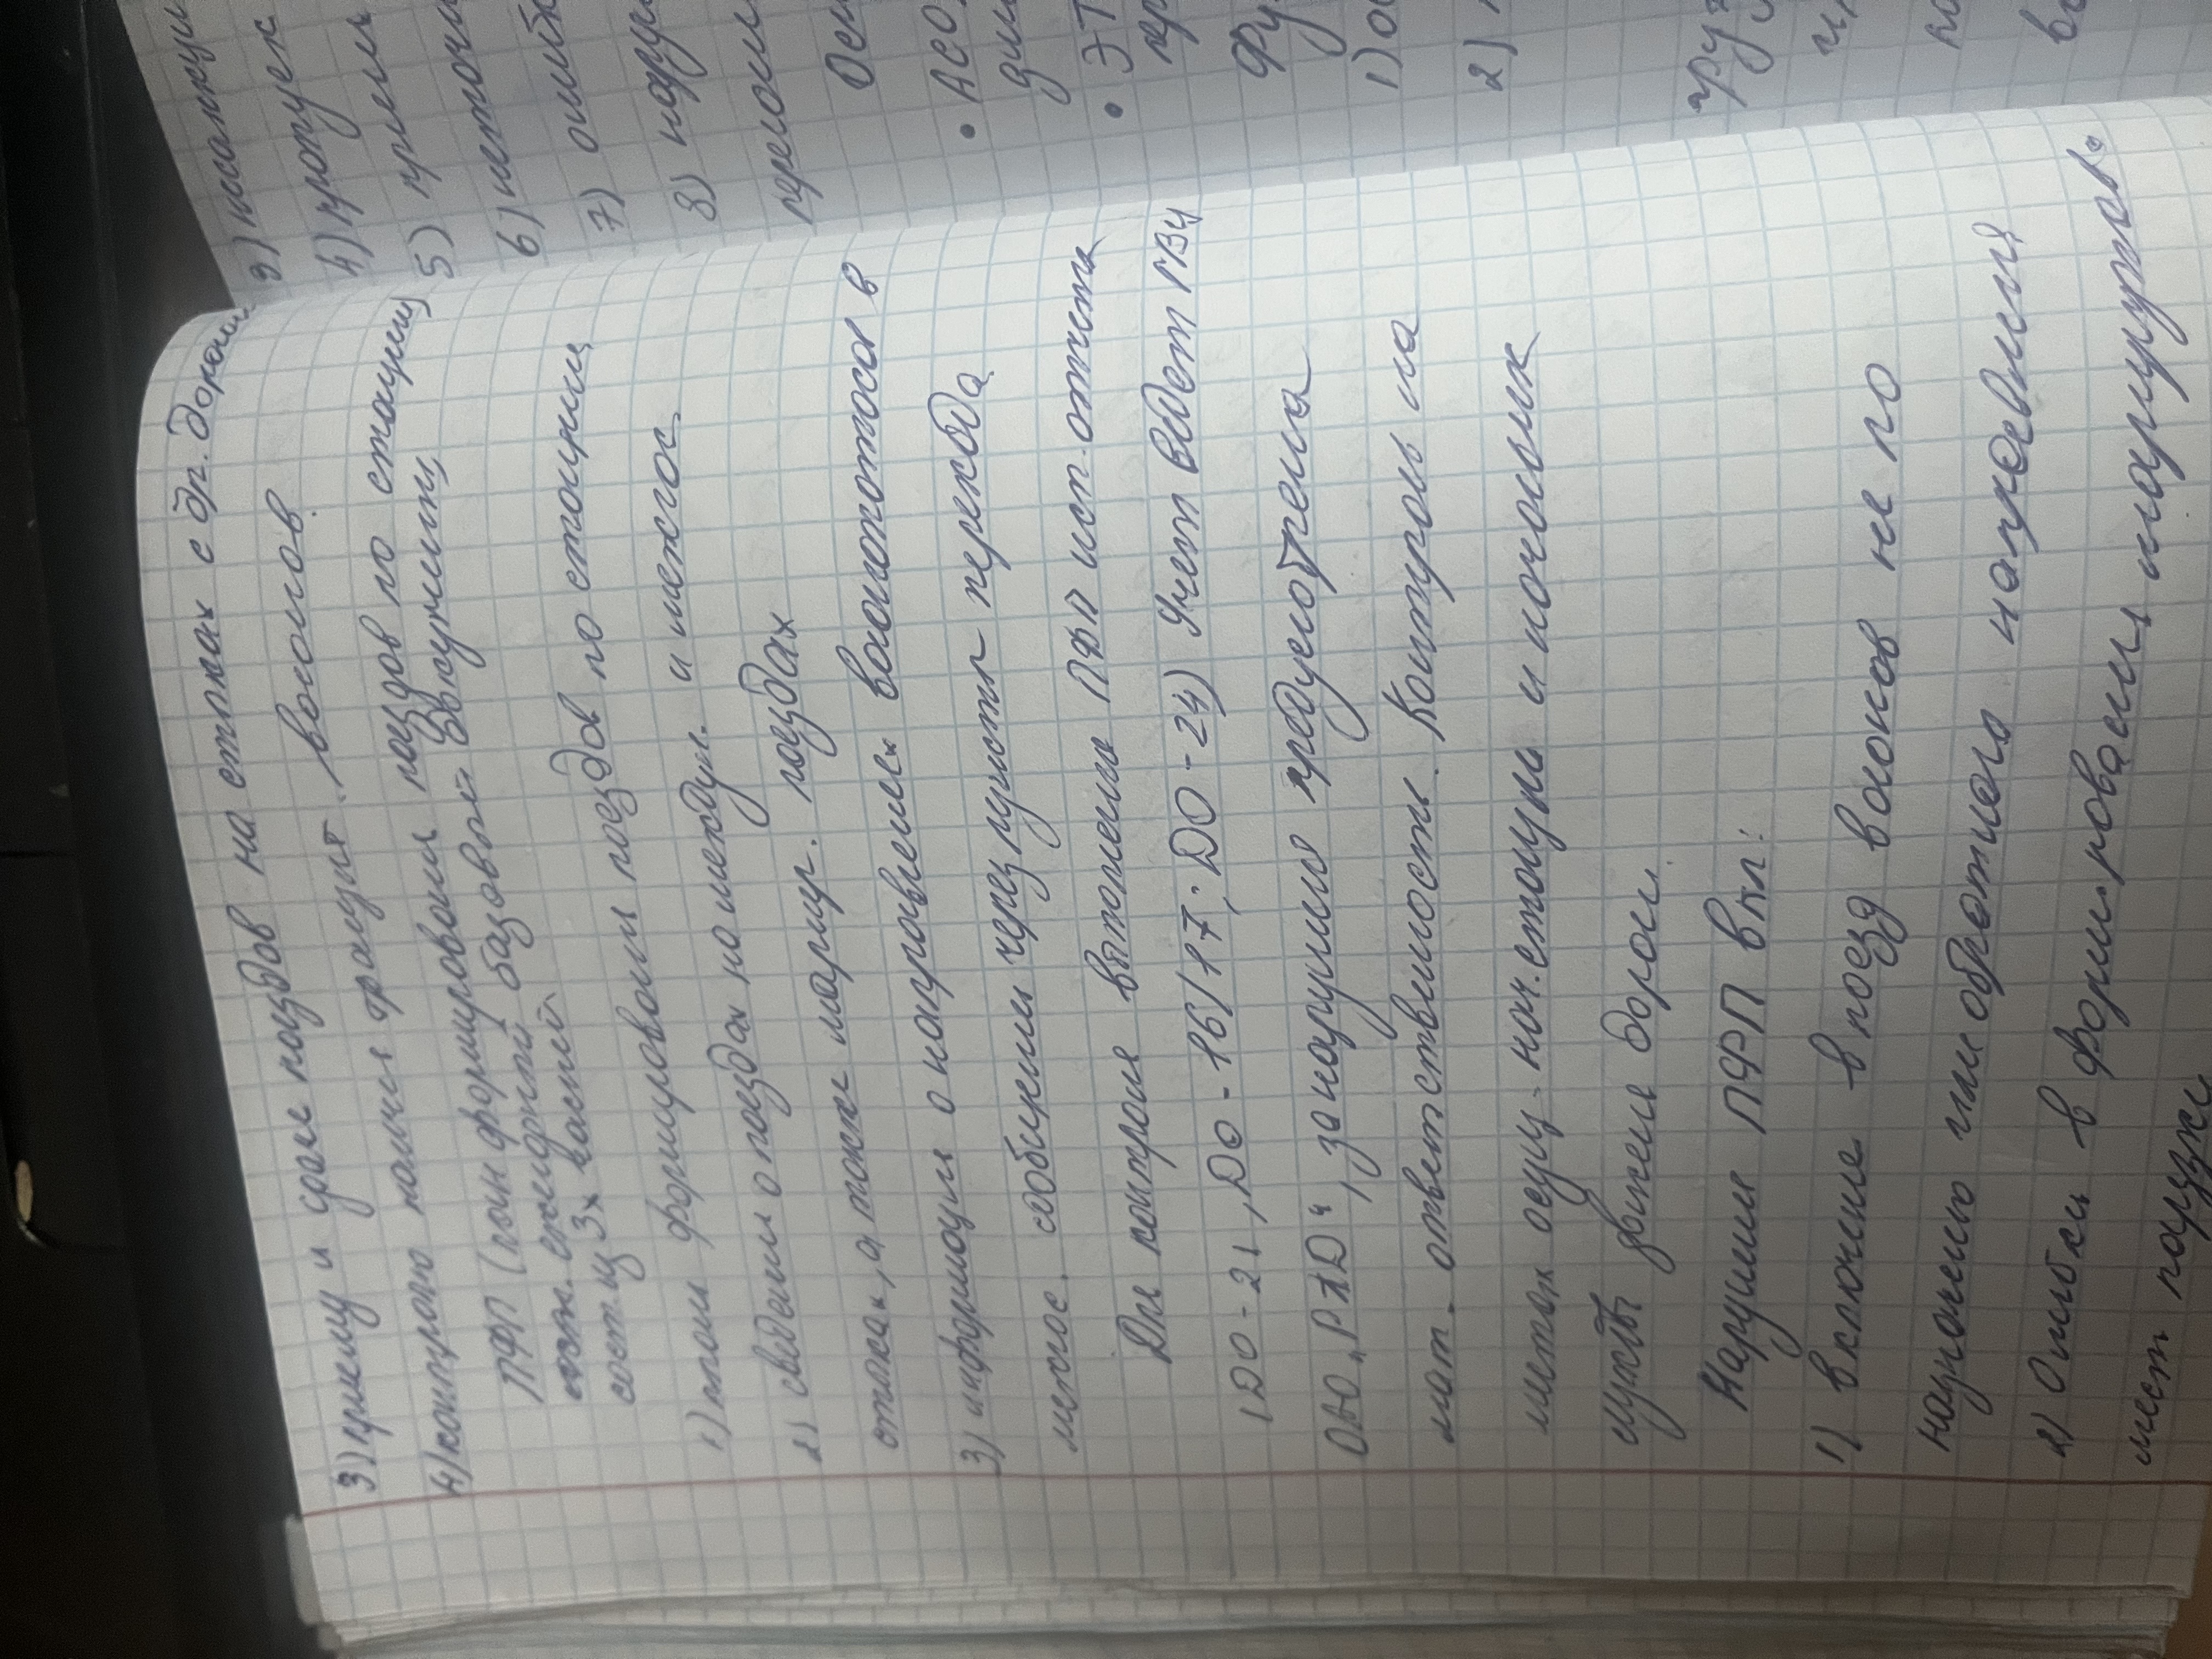 3) приему и сдаче поездов на стыках с др. дорони
4) контролю налич транзит. вагонов.
ПФП (план формировани поездов по станции)
ежедневный базовый
сост из 3х частей
1) план формировани поездов по станции
2) сведени о поездах на междун. и межгос
стыках, а также маршр. поездах
3) информаци о направлени вагонопотоков в
межгос. сообщении через пункты перехода
Для контроля выполнени ПФП исп. отчета
(DO-21, DO-16/17; DO-24) Учет ведет ГВЦ
ОАО „РЖД", за нарушение предусмотрена
мат. ответственность. Контроль на
местах осущ. нач. станции и начальник
службы движе дороги.
Нарушени ПФП вкл:
1) включение в поезд вагонов не по
назначению или обратного направления
2) Ошибки в формировани маршрутов.
мест погрузке
3) несанкци
4) пропуск
5) прием
6) неточн
7) ошибк
8) наруш
Осн
• АСО
• ЭТ
Фу
1) ос
2)
груз